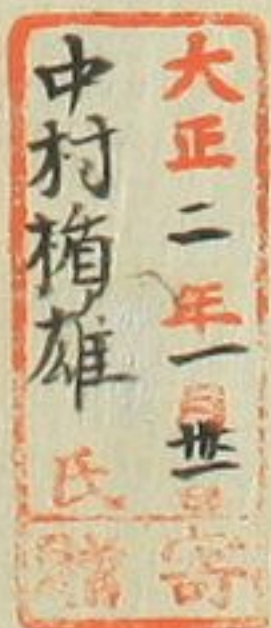 大正二年一月卅一日寄
中村楯雄氏贈